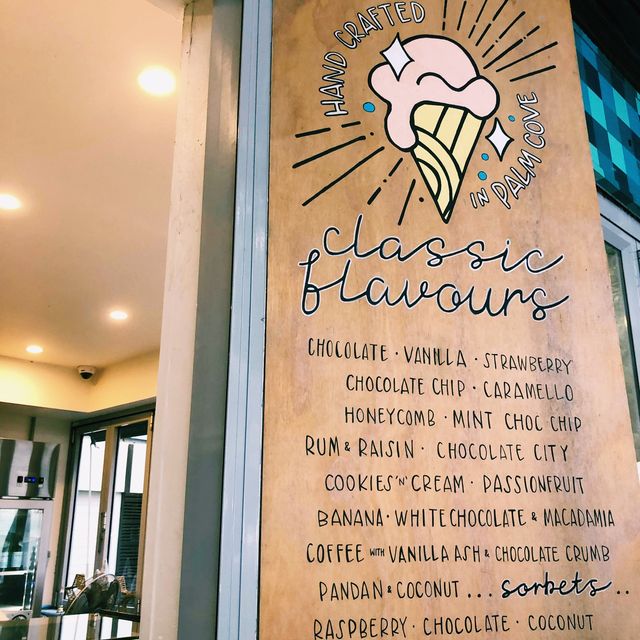 HAND CRAFTED
IN PALM COVE
classic
flavours
CHOCOLATE · VANILLA · STRAWBERRY
CHOCOLATE CHIP · CARAMELLO
HONEYCOMB · MINT CHOC CHIP
RUM & RAISIN · CHOCOLATE CITY
COOKIES 'N' CREAM · PASSIONFRUIT
BANANA · WHITE CHOCOLATE & MACADAMIA
COFFEE WITH VANILLA ASH & CHOCOLATE CRUMB
PANDAN & COCONUT ... sorbets ..
RASPBERRY · CHOCOLATE · COCONUT